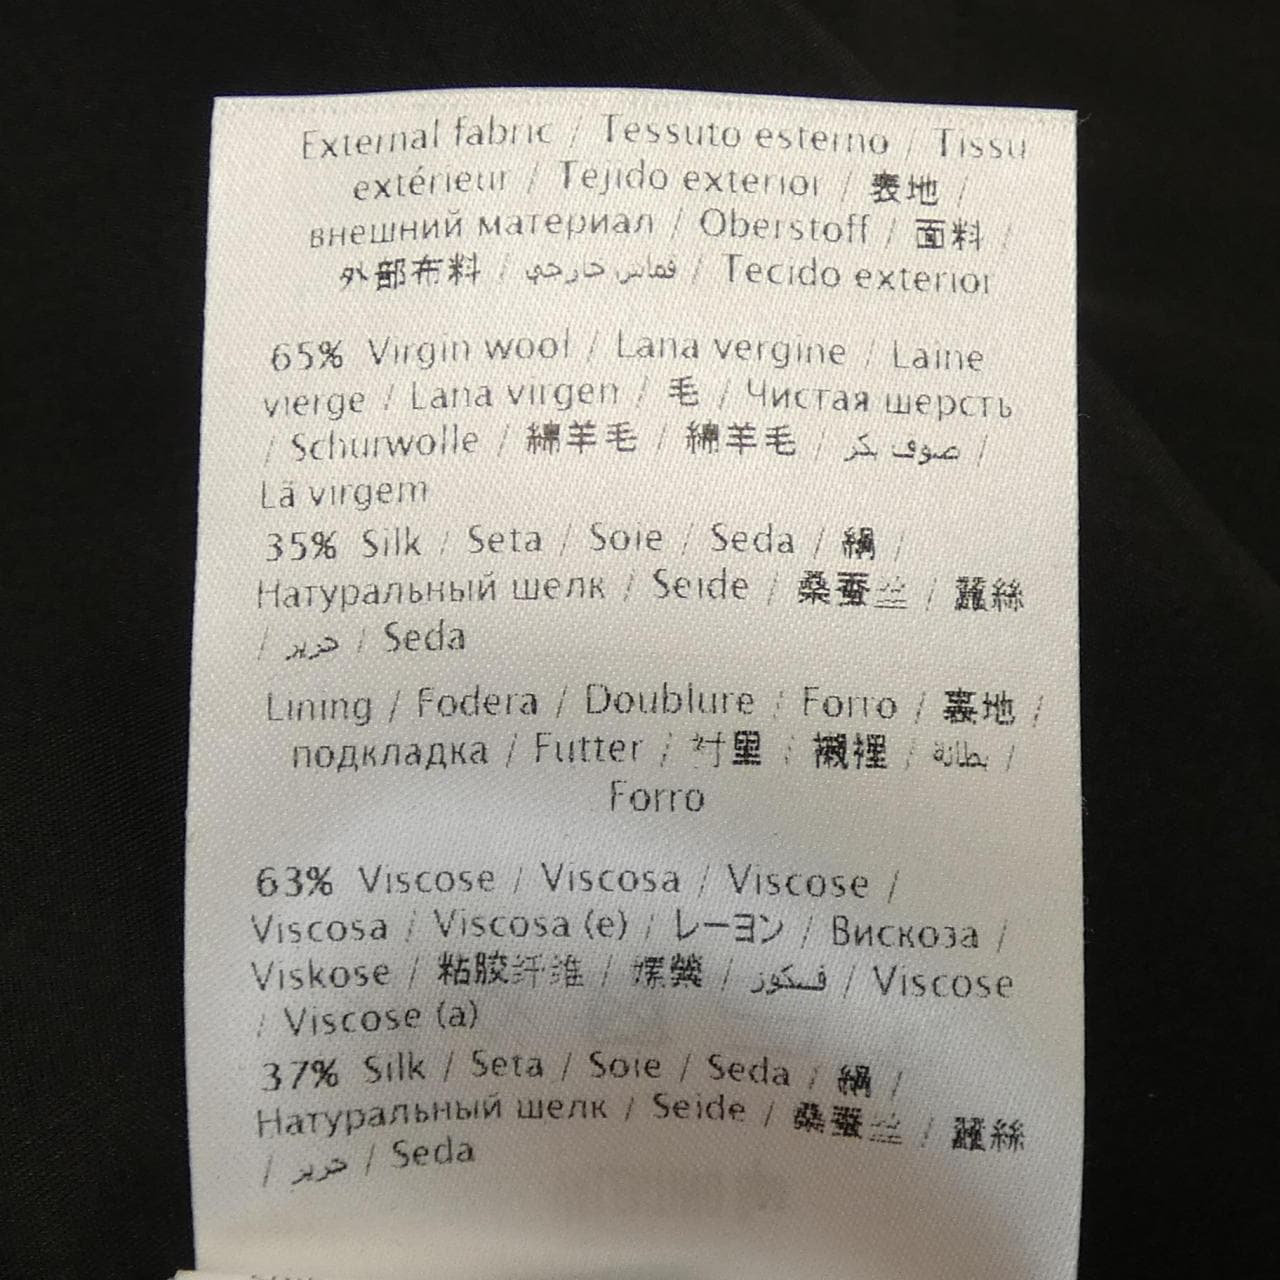 External fabric / Tessuto esterno / Tissu
extérieur / Tejido exterior / 表地 /
внешний материал / Oberstoff / 面料 /
外部布料 / قماش خارجي / Tecido exterior
65% Virgin wool / Lana vergine / Laine
vierge / Lana virgen / 毛 / Чистая шерсть
/ Schurwolle / 綿羊毛 / 綿羊毛 / صوف بكر /
Lã virgem
35% Silk / Seta / Soie / Seda / 絹 /
Натуральный шелк / Seide / 桑蚕丝 / 蠶絲
/ حرير / Seda
Lining / Fodera / Doublure / Forro / 裏地 /
подкладка / Futter / 衬里 / 襯裡 / بطانة /
Forro
63% Viscose / Viscosa / Viscose /
Viscosa / Viscosa (e) / レーヨン / Вискоза /
Viskose / 粘胶纤维 / 嫘縈 / فسكوز / Viscose
/ Viscose (a)
37% Silk / Seta / Soie / Seda / 絹 /
Натуральный шелк / Seide / 桑蚕丝 / 蠶絲
/ حرير / Seda